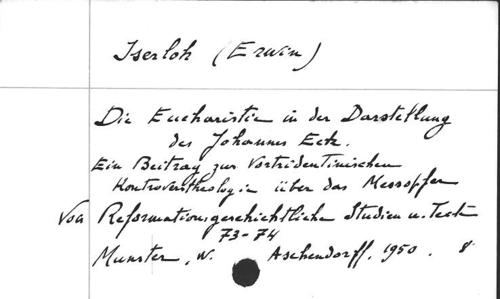 Iserloh (Erwin)
Die Eucharistie in der Darstellung
des Johannes Eck.
Ein Beitrag zur Vortridentinischen
Kontroverstheologie über das Messopfer
Reformationsgeschichtliche Studien u. Text
73-74
Munster, W. Aschendorff, 1950. 8°